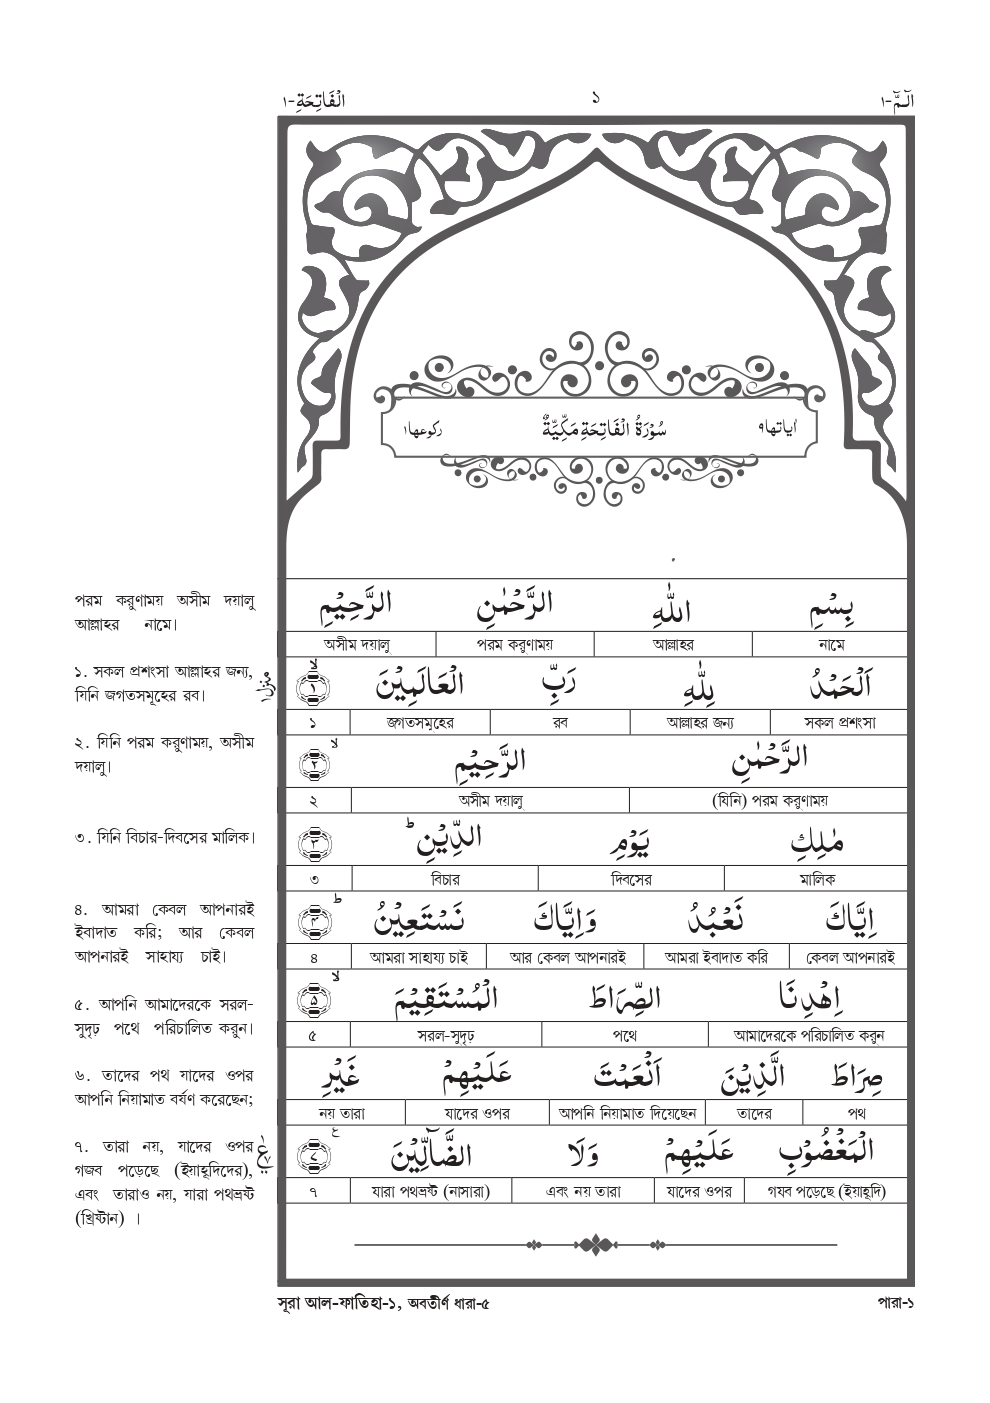 الٓمّٓ-١ ১ الْفَاتِحَةِ-١
اٰياتها٩ سُوْرَةُ الْفَاتِحَةِ مَكِّيَّةٌ ركوعها١
بِسْمِ اللّٰهِ الرَّحْمٰنِ الرَّحِيْمِ
নামে আল্লাহর পরম করুণাময় অসীম দয়ালু
اَلْحَمْدُ لِلّٰهِ رَبِّ الْعَالَمِيْنَ ۙ﴿١﴾
সকল প্রশংসা আল্লাহর জন্য রব জগতসমূহের ১
الرَّحْمٰنِ الرَّحِيْمِ ۙ﴿٢﴾
(যিনি) পরম করুণাময় অসীম দয়ালু ২
مٰلِكِ يَوْمِ الدِّيْنِ ؕ﴿٣﴾
মালিক দিবসের বিচার ৩
اِيَّاكَ نَعْبُدُ وَاِيَّاكَ نَسْتَعِيْنُ ؕ﴿٤﴾
কেবল আপনারই আমরা ইবাদাত করি আর কেবল আপনারই আমরা সাহায্য চাই ৪
اِهْدِنَا الصِّرَاطَ الْمُسْتَقِيْمَ ۙ﴿٥﴾
আমাদেরকে পরিচালিত করুন পথে সরল-সুদৃঢ় ৫
صِرَاطَ الَّذِيْنَ اَنْعَمْتَ عَلَيْهِمْ غَيْرِ
পথ তাদের আপনি নিয়ামাত দিয়েছেন যাদের ওপর নয় তারা
الْمَغْضُوْبِ عَلَيْهِمْ وَلَا الضَّآلِّيْنَ ﴿٧﴾
গযব পড়েছে (ইয়াহূদি) যাদের ওপর এবং নয় তারা যারা পথভ্রষ্ট (নাসারা) ৭
পরম করুণাময় অসীম দয়ালু
আল্লাহর নামে।
১. সকল প্রশংসা আল্লাহর জন্য,
যিনি জগতসমূহের রব।
منزل١
২. যিনি পরম করুণাময়, অসীম
দয়ালু।
৩. যিনি বিচার-দিবসের মালিক।
৪. আমরা কেবল আপনারই
ইবাদাত করি; আর কেবল
আপনারই সাহায্য চাই।
৫. আপনি আমাদেরকে সরল-
সুদৃঢ় পথে পরিচালিত করুন।
৬. তাদের পথ যাদের ওপর
আপনি নিয়ামাত বর্ষণ করেছেন;
৭. তারা নয়, যাদের ওপর
গজব পড়েছে (ইয়াহূদিদের),
এবং তারাও নয়, যারা পথভ্রষ্ট
(খ্রিষ্টান) ।
সূরা আল-ফাতিহা-১, অবতীর্ণ ধারা-৫ পারা-১